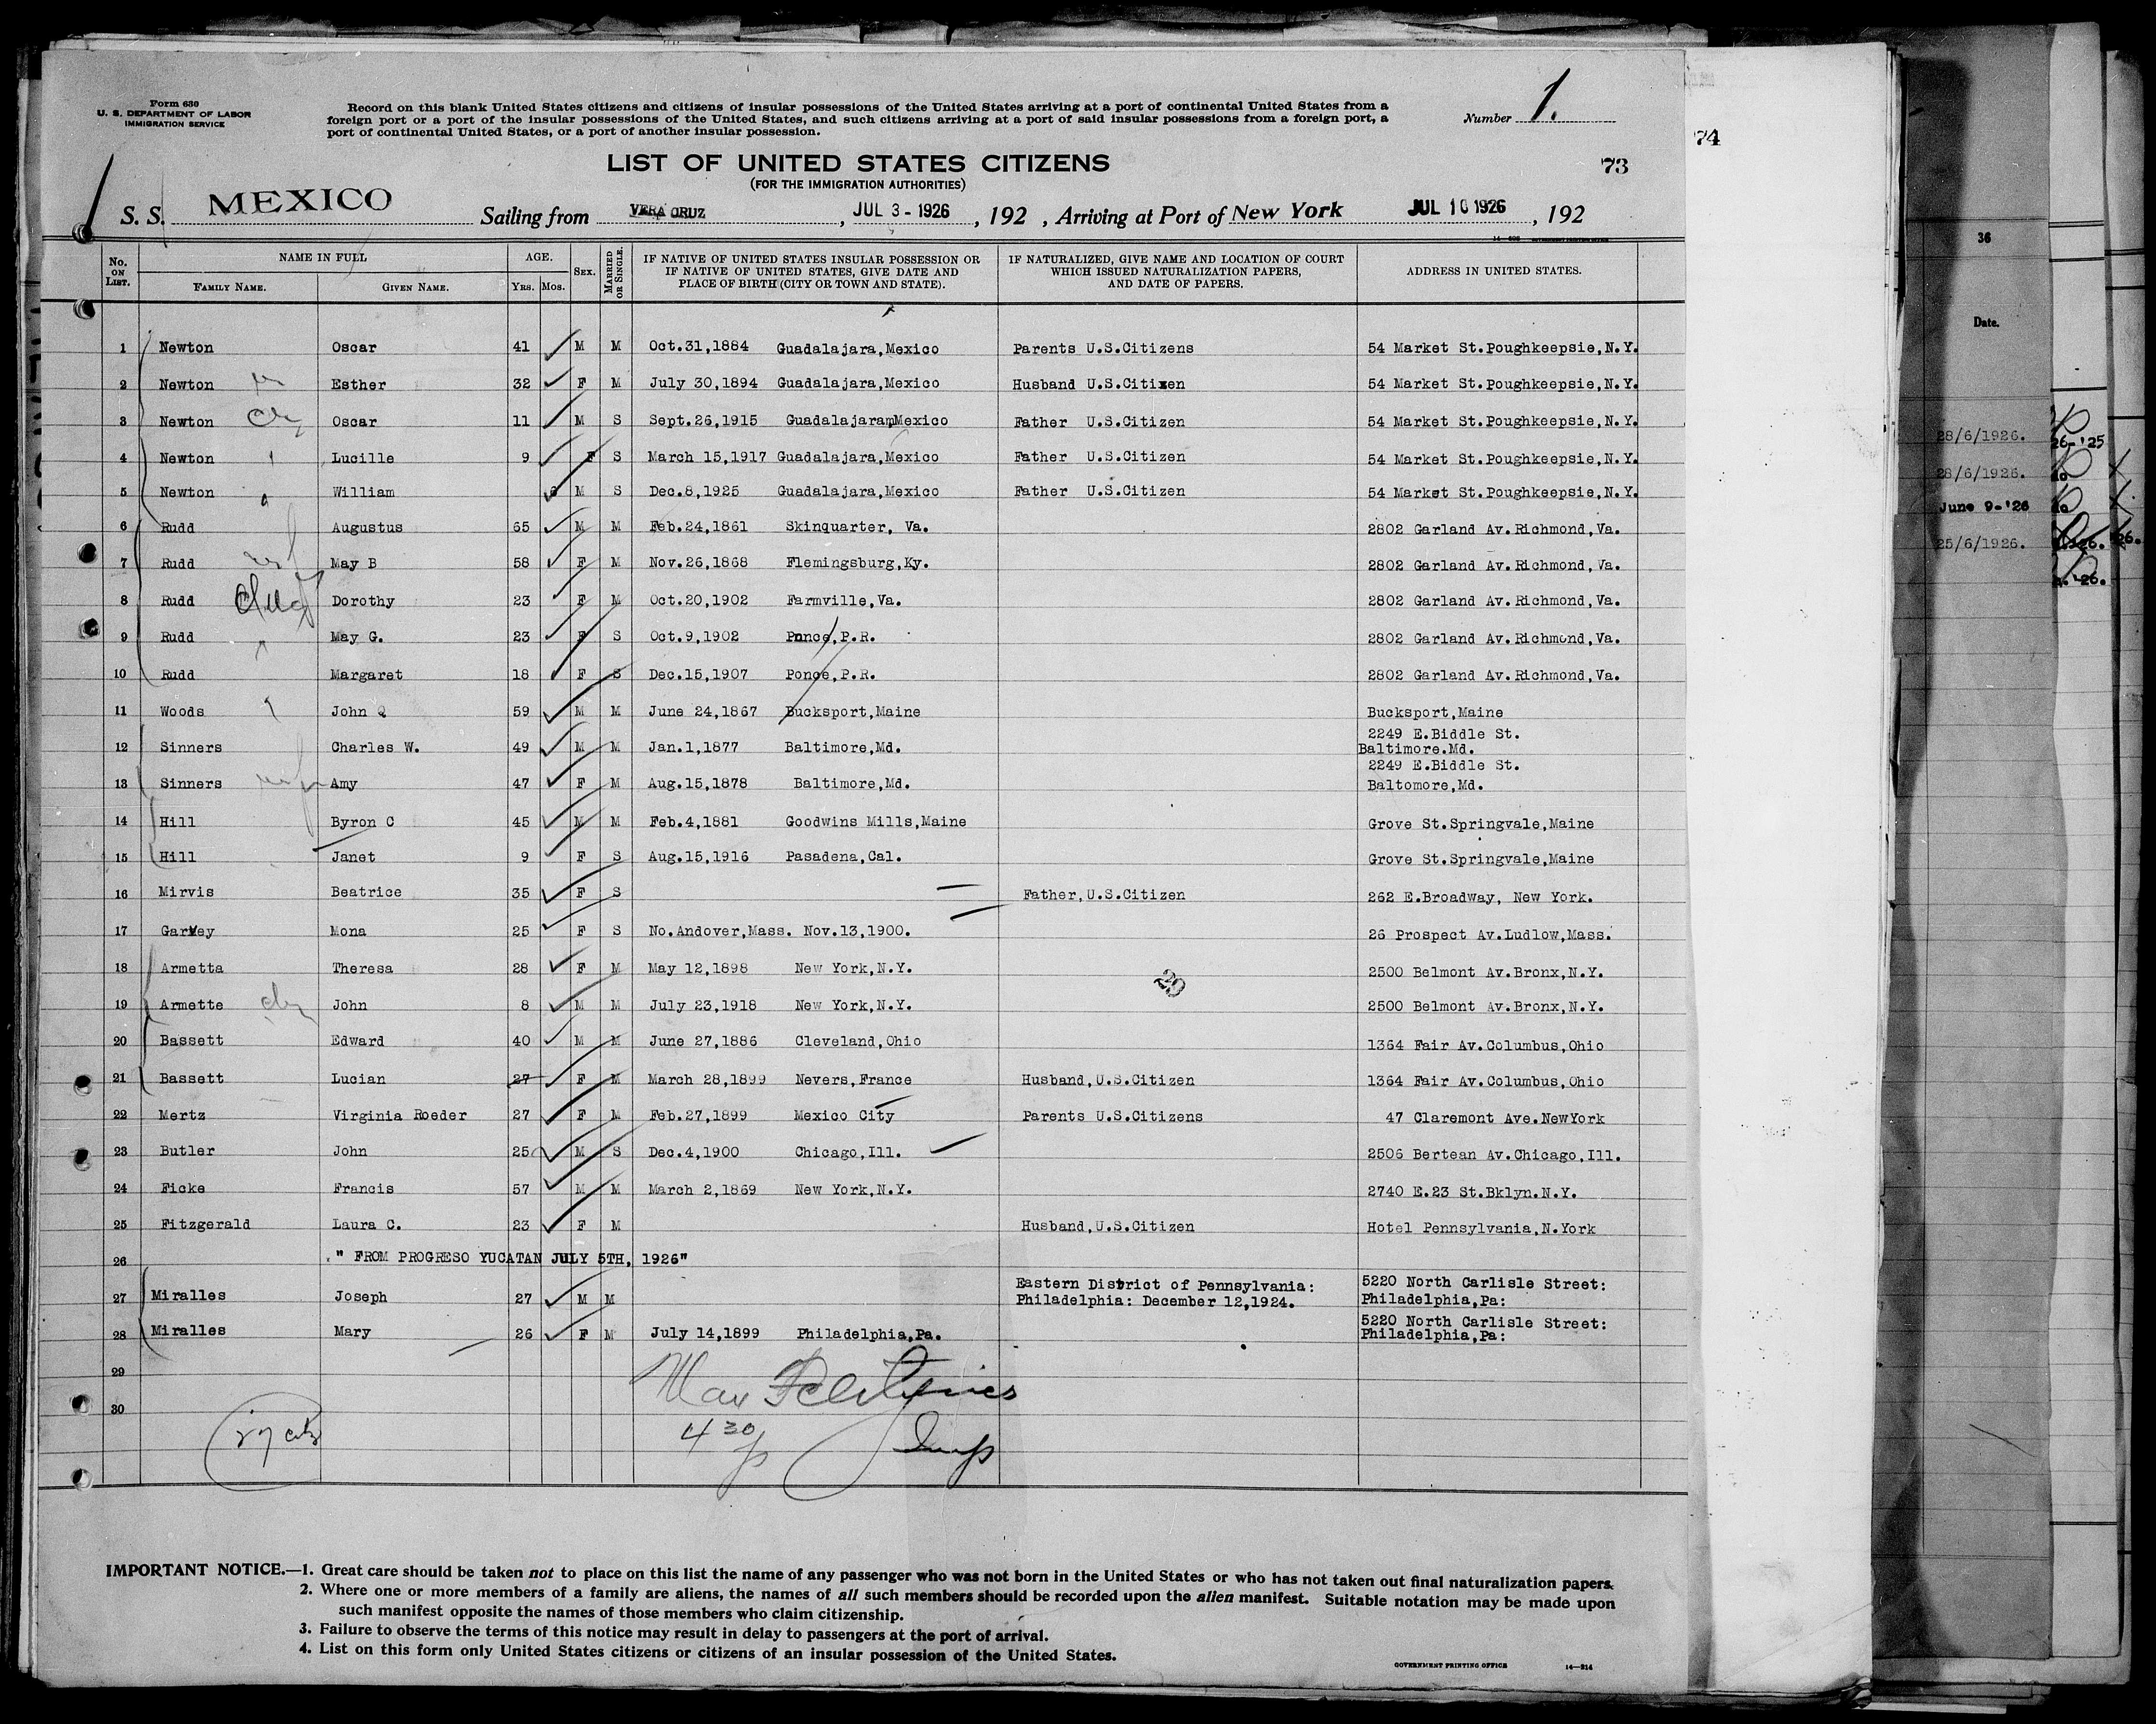 Form 630
U. S. DEPARTMENT OF LABOR
IMMIGRATION SERVICE
Record on this blank United States citizens and citizens of insular possessions of the United States arriving at a port of continental United States from a
foreign port or a port of the insular possessions of the United States, and such citizens arriving at a port of said insular possessions from a foreign port, a
port of continental United States, or a port of another insular possession.
Number 1.
74
LIST OF UNITED STATES CITIZENS
(FOR THE IMMIGRATION AUTHORITIES)
73
S. S. MEXICO Sailing from VERA CRUZ, JUL 3 - 1926, 192 , Arriving at Port of New York JUL 10 1926, 192
No. ON LIST. NAME IN FULL AGE. SEX. MARRIED OR SINGLE. IF NATIVE OF UNITED STATES INSULAR POSSESSION OR IF NATIVE OF UNITED STATES, GIVE DATE AND PLACE OF BIRTH (CITY OR TOWN AND STATE). IF NATURALIZED, GIVE NAME AND LOCATION OF COURT WHICH ISSUED NATURALIZATION PAPERS, AND DATE OF PAPERS. ADDRESS IN UNITED STATES.
FAMILY NAME. GIVEN NAME. YRS. MOS.
1 Newton Oscar 41 M M Oct.31,1884 Guadalajara,Mexico Parents U.S.Citizens 54 Market St.Poughkeepsie,N.Y.
2 Newton Esther 32 F M July 30,1894 Guadalajara,Mexico Husband U.S.Citizen 54 Market St.Poughkeepsie,N.Y.
3 Newton Oscar 11 M S Sept.26,1915 Guadalajara,Mexico Father U.S.Citizen 54 Market St.Poughkeepsie,N.Y.
4 Newton Lucille 9 F S March 15,1917 Guadalajara,Mexico Father U.S.Citizen 54 Market St.Poughkeepsie,N.Y.
5 Newton William M S Dec.8,1925 Guadalajara,Mexico Father U.S.Citizen 54 Market St.Poughkeepsie,N.Y.
6 Rudd Augustus 65 M M Feb.24,1861 Skinquarter, Va. 2802 Garland Av.Richmond,Va.
7 Rudd May B 58 F M Nov.26,1868 Flemingsburg,Ky. 2802 Garland Av.Richmond,Va.
8 Rudd Dorothy 23 F M Oct.20,1902 Farmville,Va. 2802 Garland Av.Richmond,Va.
9 Rudd May G. 23 F S Oct.9,1902 Ponce,P.R. 2802 Garland Av.Richmond,Va.
10 Rudd Margaret 18 F S Dec.15,1907 Ponce,P.R. 2802 Garland Av.Richmond,Va.
11 Woods John Q 59 M M June 24,1867 Bucksport,Maine Bucksport,Maine
12 Sinners Charles W. 49 M M Jan.1,1877 Baltimore,Md. 2249 E.Biddle St. Baltimore.Md.
13 Sinners Amy 47 F M Aug.15,1878 Baltimore,Md. 2249 E.Biddle St. Baltomore,Md.
14 Hill Byron C 45 M M Feb.4,1881 Goodwins Mills,Maine Grove St.Springvale,Maine
15 Hill Janet 9 F S Aug.15,1916 Pasadena,Cal. Grove St.Springvale,Maine
16 Mirvis Beatrice 35 F S Father,U.S.Citizen 262 E.Broadway, New York.
17 Garvey Mona 25 F S No.Andover,Mass. Nov.13,1900. 26 Prospect Av.Ludlow,Mass.
18 Armetta Theresa 28 F M May 12,1898 New York,N.Y. 2500 Belmont Av.Bronx,N.Y.
29
19 Armette John 8 M M July 23,1918 New York,N.Y. 2500 Belmont Av.Bronx,N.Y.
20 Bassett Edward 40 M M June 27,1886 Cleveland,Ohio 1364 Fair Av.Columbus,Ohio
21 Bassett Lucian 27 F M March 28,1899 Nevers,France Husband,U.S.Citizen 1364 Fair Av.Columbus,Ohio
22 Mertz Virginia Roeder 27 F M Feb.27,1899 Mexico City Parents U.S.Citizens 47 Claremont Ave.NewYork
23 Butler John 25 M S Dec.4,1900 Chicago,Ill. 2506 Bertean Av.Chicago,Ill.
24 Ficke Francis 57 M M March 2,1869 New York,N.Y. 2740 E.23 St.Bklyn.N.Y.
25 Fitzgerald Laura C. 23 F M Husband,U.S.Citizen Hotel Pennsylvania,N.York
26 " FROM PROGRESO YUCATAN JULY 5TH, 1926"
27 Miralles Joseph 27 M M Eastern District of Pennsylvania: Philadelphia: December 12,1924. 5220 North Carlisle Street: Philadelphia,Pa:
28 Miralles Mary 26 F M July 14,1899 Philadelphia,Pa. 5220 North Carlisle Street: Philadelphia,Pa:
29
30
4 30 p
Insp
IMPORTANT NOTICE.—1. Great care should be taken not to place on this list the name of any passenger who was not born in the United States or who has not taken out final naturalization papers.
2. Where one or more members of a family are aliens, the names of all such members should be recorded upon the alien manifest. Suitable notation may be made upon
such manifest opposite the names of those members who claim citizenship.
3. Failure to observe the terms of this notice may result in delay to passengers at the port of arrival.
4. List on this form only United States citizens or citizens of an insular possession of the United States.
GOVERNMENT PRINTING OFFICE 14—214
36
Date.
28/6/1926.
28/6/1926.
June 9-'26
25/6/1926.
26-'25